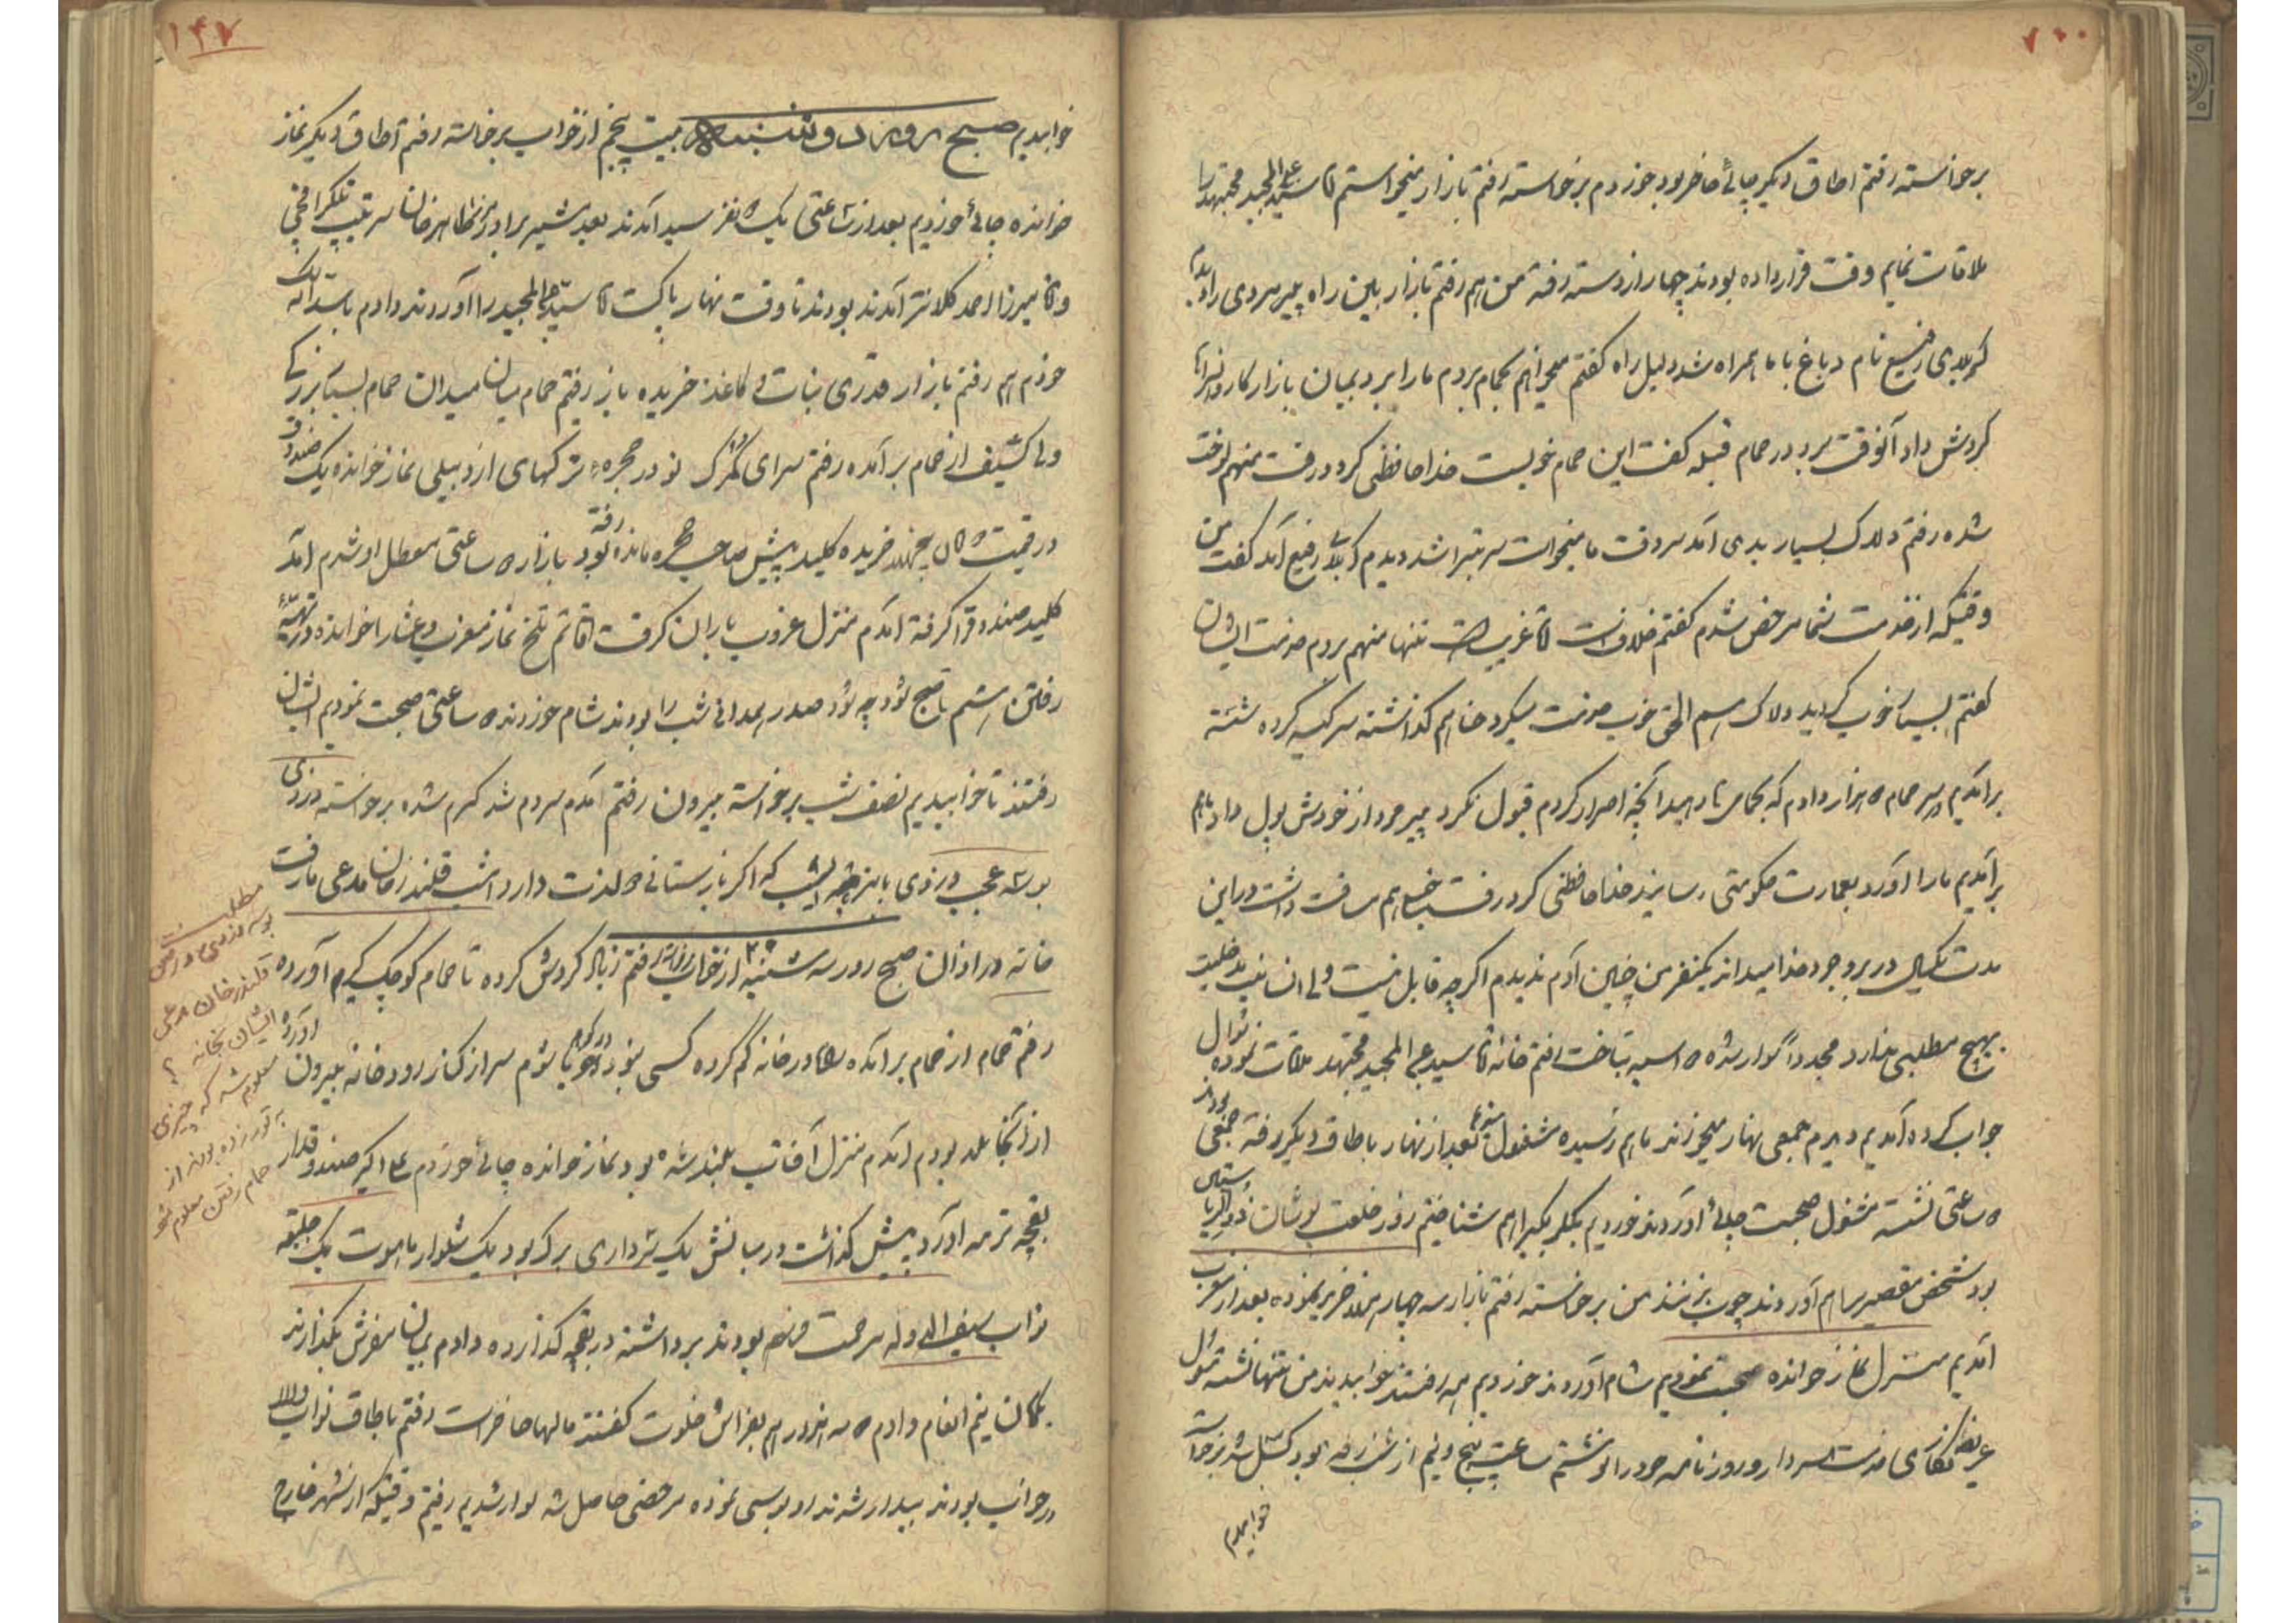 ۷۰۰
برخواسته رفتم اطاق دیگر چائی حاضر بود خوردم برخواسته رفتم بازار میخواستم آقا سید عبدالمجید مجتهد را
ملاقات نمایم وقت قرار داده بودند چهار از دسته رفته من هم رفتم بازار بین راه پیرمردی را دیدم
کربلای رفیع نام دباغ با ما همراه شد دلیل راه گفتم میخواهم بحمام بردم ما را برد بمیان بازار کاروانسراها
گردش داد آنوقت برد در حمام قبله گفت این حمام خوبست خدا حافظی کرد و رفت منهم لخت
شده رفتم دلاک بسیار بدی آمد سر وقت ما میخواست سر بتراشد دیدم کربلای رفیع آمد گفت من
وقتیکه از خدمت شما مرخص شدم گفتم خلافست آقا غریب است تنها منهم بردم خدمت ایشان
گفتم بسیار خوب کردید دلاک هم الحق خوب خدمت میکرد حنا هم گذاشته سر کیسه کرده شسته
برآمدم سر حمام ه هزار دادم که بحمامی بدهید آنچه اصرار کردم قبول نکرد پیر مرد از خودش پول داد باهم
برآمدیم ما را آورد بعمارت حکومتی رسانید خدا حافظی کرد رفت خیلی هم مسافت داشت در این
مدت یکسال در بروجرد خدا میداند یکنفر من چنین آدم ندیدم اگرچه قابل نیست ولی انسانیت
بهیچ مطلبی ندارد مجددا سوار شده ه اسبه بتاخت رفتم خانه آقا سید عبدالمجید مجتهد ملاقات نموده
جواب کرده آمدیم دیدم جمعی نهار میخورند ما هم رسیده مشغول شدیم بعد از نهار باطاق دیگر رفته جمعی بودند
ه ساعتی نشسته مشغول صحبت چائی آوردند خوردیم یکدیگر را هم شناختیم روز خلعت پوشان
بود شخص مقصر را هم آوردند چوب بزنند من برخواسته رفتم بازار سه چهار خرید نموده بعد از مغرب
آمدیم منزل نماز خوانده صحبت نمودیم شام آوردند خوردیم همه رفتند خوابیدند من تنها نشسته مشغول
عریضه نگاری خدمت سردار و روزنامه خود را نوشتم ساعت پنج و نیم از شب رفته بود کسل شده برخواسته
خوابیدم
۱۴۷
خوابیدیم صبح روز دوشنبه بیست پنجم از خواب برخاسته رفتم اطاق دیگر نماز
خوانده چائی خوردیم بعد از ساعتی یک ه نفر سید آمدند بعد بشیر برادرزاده طاهرخان سرتیپ تلگرافچی
و آقا میرزا احمد کلانتر آمدند بودند تا وقت نهار پاکت آقا سید عبدالمجید را آوردند دادم
خودم هم رفتم بازار قدری نبات و کاغذ خریده باز رفتم حمام میان میدان حمام بسیار بزرگی
ولی کثیف از حمام برآمده رفتم سرای گمرک نو در حجره ترکهای اردبیلی نماز خوانده یک صندوق
در قیمت بجهة خریده کلید پیش صاحب حجره مانده رفته بود بازار ه ساعتی معطل او شدم آمد
کلید صندوق را گرفته آمدم منزل غروب باران گرفت اوقاتم تلخ نماز مغرب و عشا را خوانده در تهیه
رفتن هستم تا صبح شود چه شود صدر همدانی شب را بودند شام خوردند ه ساعتی صحبت نمودیم ایشان
رفتند تا خوابیدیم نصف شب برخواسته بیرون رفتم آمدم سردم شد گرم شده برخواسته دزدی
بوسه عجب دزدی بامزه‌ایست که اگر باز ستانی ه لذت دارد امشب قلندرخان مدعی ما رفت
خانه در اذان صبح روز سه شنبه ۲۶ از خواب برخواسته رفتم زیاد گردش کرده تا حمام کوچک گیر آورده
رفتم حمام از حمام برآمده راه در خانه گم کرده کسی نبود جویا شوم سر از کنار رودخانه بیرون آورده
از آنجا بلد بودم آمدم منزل آفتاب بلند شده بود نماز خوانده چائی خوردم علی اکبر صندوقدار
بقچه ترمه آورد پیش گذاشت در میانش یک سرداری برک بود یک شلوار ماهوت یک جلیقه
نواب سیف الدوله مرحمت فرموده بودند برداشته در بقچه گذارده دادم بمیان مفرش بگذارند
یکتومان نیم انعام دادم ه سه هزار هم بفراش خلوت گفتند مالها حاضر است رفتم باطاق نواب والا
در خواب بودند بیدار شدند رو بوسی نموده مرخصی حاصل شد سوار شدیم رفتم وقتیکه از شهر خارج
مطلب
بوسه دزدی و رفتن
قلندرخان مدعی
ایشان بخانه ؟
معلوم شد که چیزی
به تور زده بودند از
حمام رفتن معلوم شد